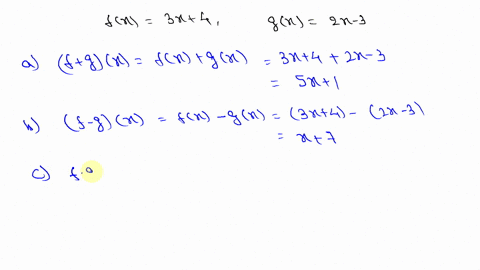 f(x) = 3x+4, g(x) = 2x-3
a) (f+g)(x) = f(x)+g(x) = 3x+4+2x-3
= 5x+1
b) (f-g)(x) = f(x)-g(x) = (3x+4)-(2x-3)
= x+7
c) f.g